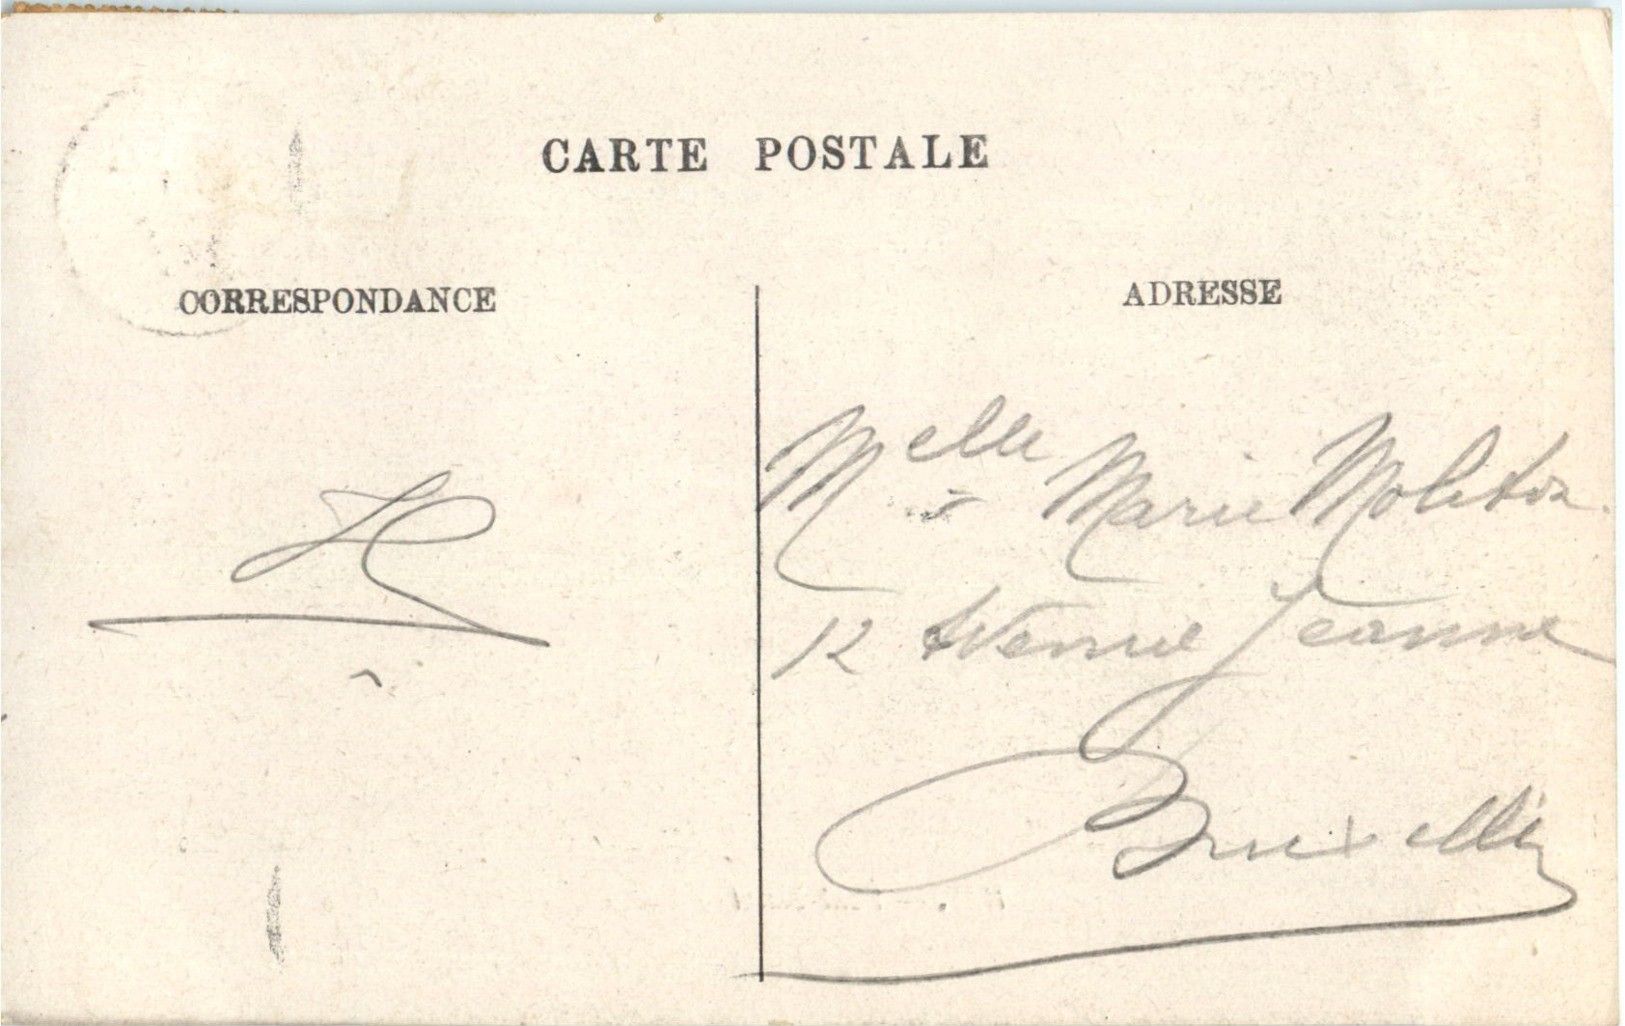 CARTE POSTALE
CORRESPONDANCE
ADRESSE
Melle Marie Molitor
12 Avenue Jeanne
Bruxelles